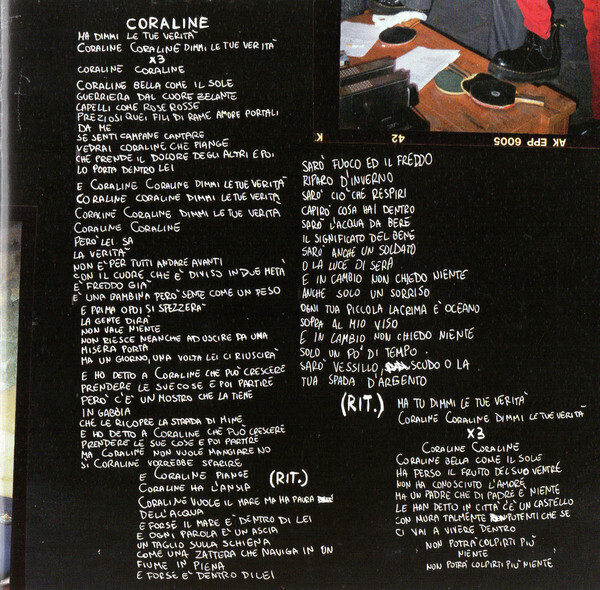 CORALINE
MA DIMMI LE TUE VERITÀ
CORALINE CORALINE DIMMI LE TUE VERITÀ
X3
CORALINE CORALINE
CORALINE BELLA COME IL SOLE
GUERRIERA DAL CUORE ZELANTE
CAPELLI COME ROSE ROSSE
PREZIOSI QUEI FILI DI RAME AMORE PORTALI
DA ME
SE SENTI CAMPANE CANTARE
VEDRAI CORALINE CHE PIANGE
CHE PRENDE IL DOLORE DEGLI ALTRI E POI
LO PORTA DENTRO LEI
E CORALINE CORALINE DIMMI LE TUE VERITÀ
CORALINE CORALINE DIMMI LE TUE VERITÀ
CORALINE CORALINE DIMMI LE TUE VERITÀ
CORALINE CORALINE
PERÒ LEI SA
LA VERITÀ
NON È PER TUTTI ANDARE AVANTI
CON IL CUORE CHE È DIVISO IN DUE METÀ
E' FREDDO GIÀ
E' UNA BAMBINA PERÒ SENTE COME UN PESO
E PRIMA O POI SI SPEZZERÀ
LA GENTE DIRÀ
NON VALE NIENTE
NON RIESCE NEANCHE AD USCIRE DA UNA
MISERA PORTA
MA UN GIORNO, UNA VOLTA LEI CI RIUSCIRÀ
E HO DETTO A CORALINE CHE PUÒ CRESCERE
PRENDERE LE SUE COSE E POI PARTIRE
PERÒ C'È UN MOSTRO CHE LA TIENE
IN GABBIA
CHE LE RICOPRE LA STRADA DI MINE
E HO DETTO A CORALINE CHE PUÒ CRESCERE
PRENDERE LE SUE COSE E POI PARTIRE
MA CORALINE NON VUOLE MANGIARE NO
SI CORALINE VORREBBE SPARIRE
E CORALINE PIANGE (RIT.)
CORALINE HA L'ANSIA
CORALINE VUOLE IL MARE MA HA PAURA
DELL'ACQUA
E FORSE IL MARE È DENTRO DI LEI
E OGNI PAROLA È UN'ASCIA
UN TAGLIO SULLA SCHIENA
COME UNA ZATTERA CHE NAVIGA IN UN
FIUME IN PIENA
E FORSE È DENTRO DI LEI
K 42 AK EPP 6005
SARÒ FUOCO ED IL FREDDO
RIPARO D'INVERNO
SARÒ CIÒ CHE RESPIRI
CAPIRÒ COSA HAI DENTRO
SARÒ L'ACQUA DA BERE
IL SIGNIFICATO DEL BENE
SARÒ ANCHE UN SOLDATO
O LA LUCE DI SERA
E IN CAMBIO NON CHIEDO NIENTE
ANCHE SOLO UN SORRISO
OGNI TUA PICCOLA LACRIMA È OCEANO
SOPRA AL MIO VISO
E IN CAMBIO NON CHIEDO NIENTE
SOLO UN PO' DI TEMPO
SARÒ VESSILLO, SCUDO O LA
TUA SPADA D'ARGENTO
(RIT.) MA TU DIMMI LE TUE VERITÀ
CORALINE CORALINE DIMMI LE TUE VERITÀ
X3
CORALINE CORALINE
CORALINE BELLA COME IL SOLE
HA PERSO IL FRUTTO DEL SUO VENTRE
NON HA CONOSCIUTO L'AMORE
MA UN PADRE CHE DI PADRE È NIENTE
LE HAN DETTO IN CITTÀ C'È UN CASTELLO
CON MURA TALMENTE POTENTI CHE SE
CI VAI A VIVERE DENTRO
NON POTRÀ COLPIRTI PIÙ
NIENTE
NON POTRÀ COLPIRTI PIÙ NIENTE